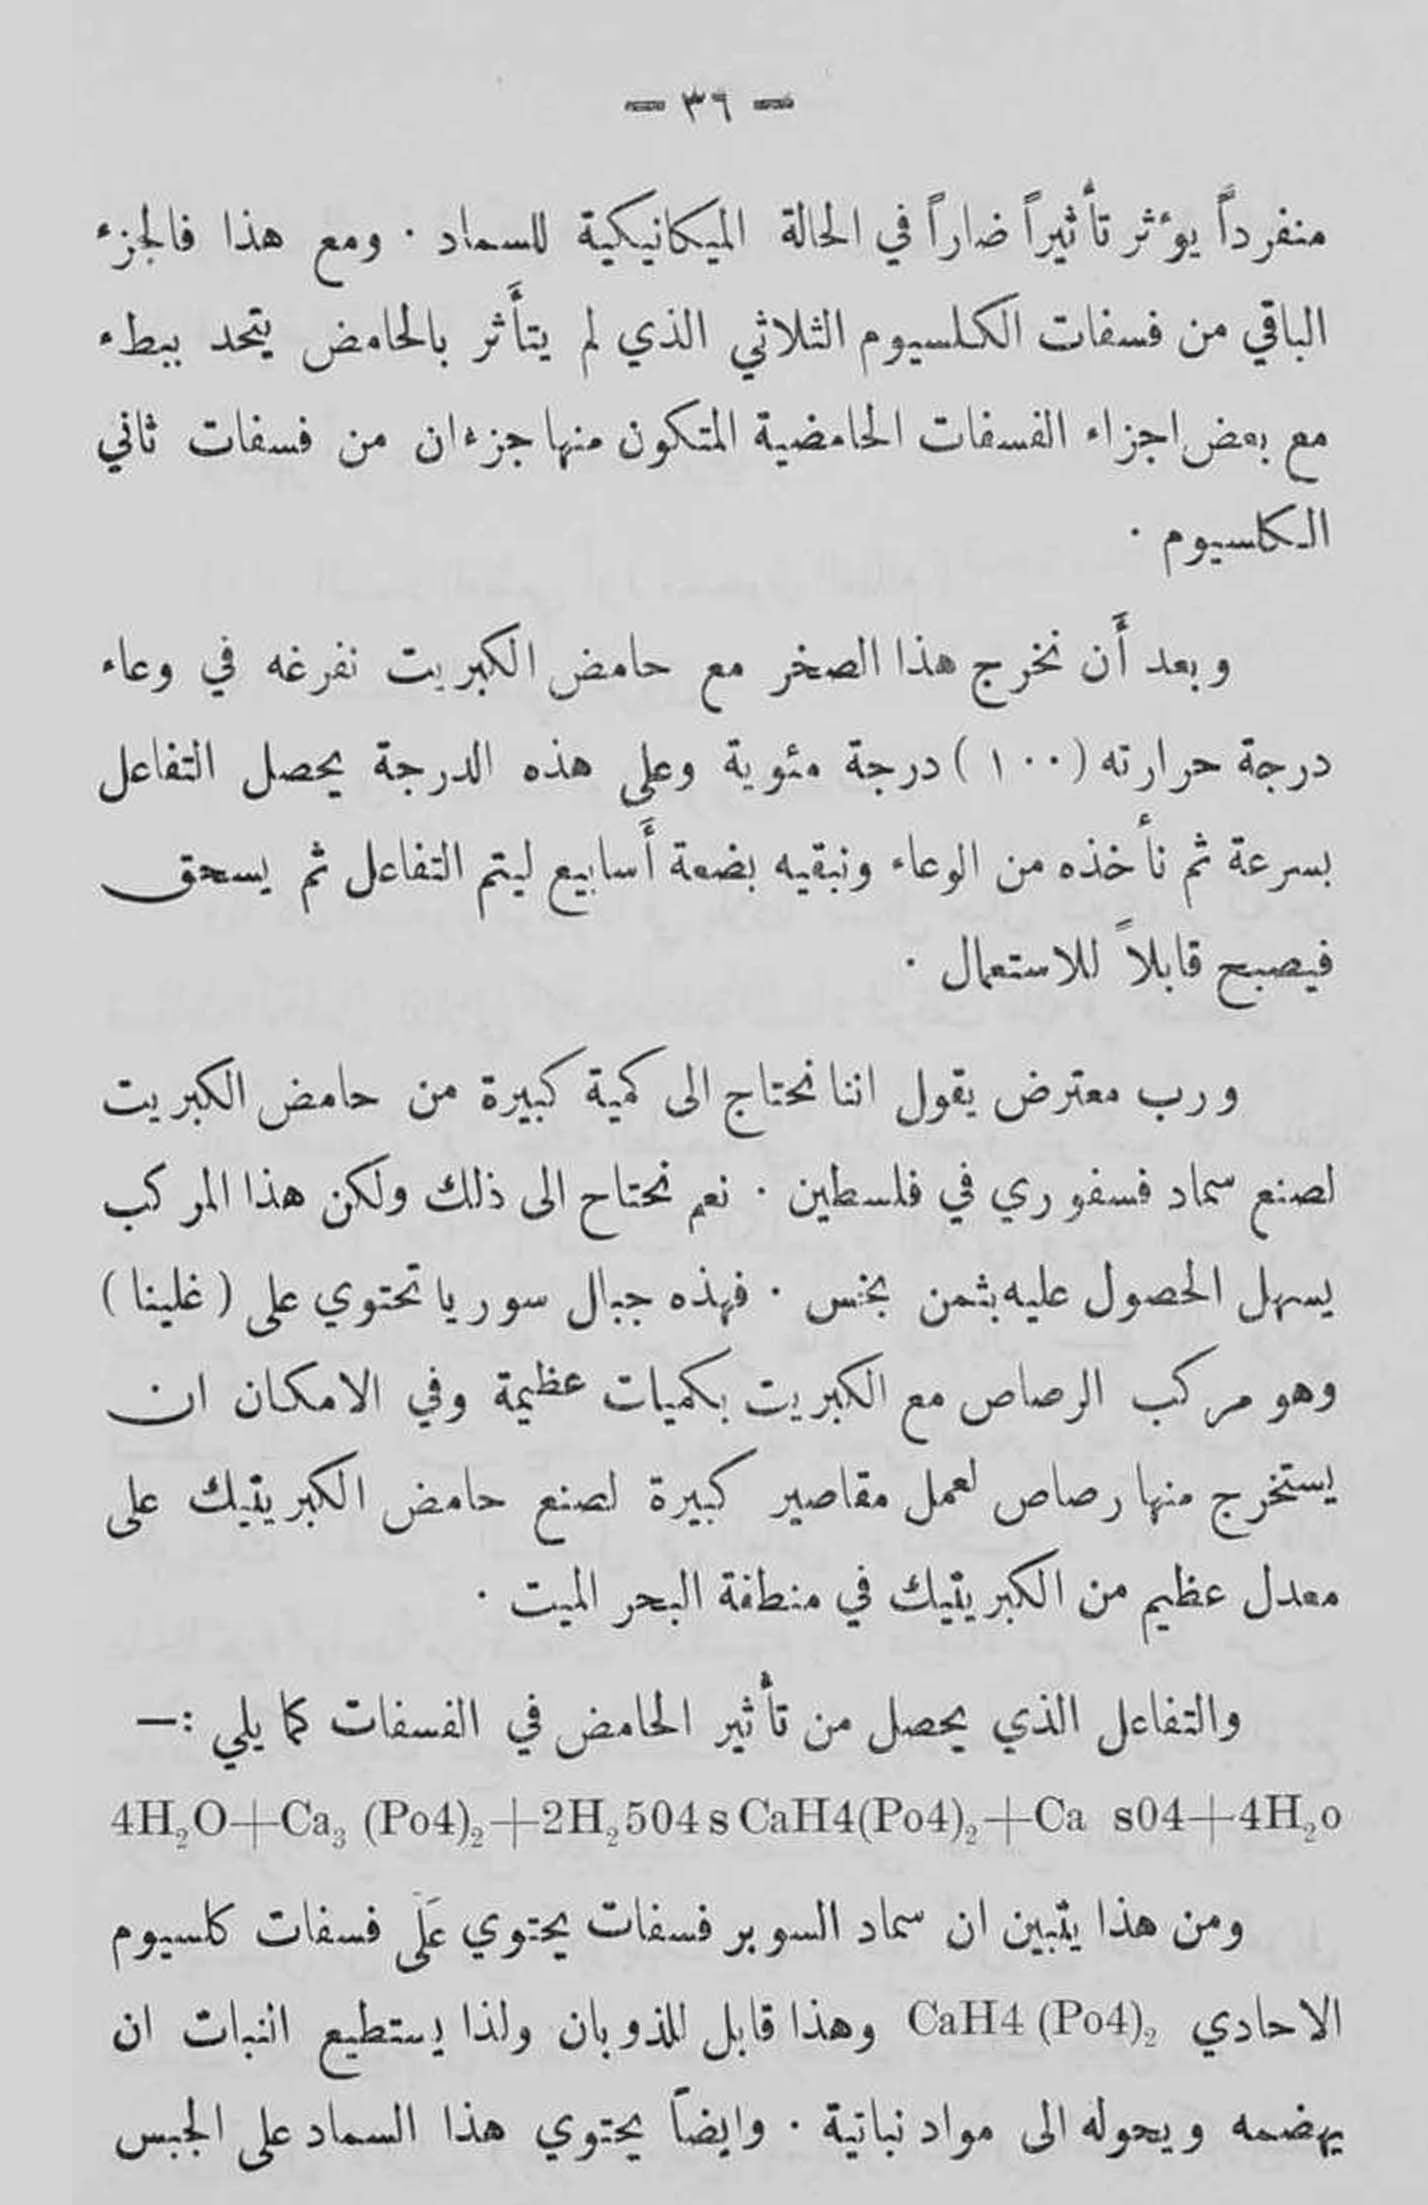 — ٣٦ —
منفرداً يؤثر تأثيراً ضاراً في الحالة الميكانيكية للسماد . ومع هذا فالجزء
الباقي من فسفات الكلسيوم الثلاثي الذي لم يتأَثر بالحامض يتحد ببطء
مع بعض اجزاء الفسفات الحامضية المتكون منها جزءان من فسفات ثاني
الكلسيوم .
وبعد أَن نخرج هذا الصخر مع حامض الكبريت نفرغه في وعاء
درجة حرارته (١٠٠) درجة مئوية وعلى هذه الدرجة يحصل التفاعل
بسرعة ثم نأخذه من الوعاء ونبقيه بضعة أَسابيع ليتم التفاعل ثم يسحق
فيصبح قابلاً للاستعمال .
ورب معترض يقول اننا نحتاج الى كمية كبيرة من حامض الكبريت
لصنع سماد فسفوري في فلسطين . نعم نحتاح الى ذلك ولكن هذا المركب
يسهل الحصول عليه بثمن بخس . فهذه جبال سوريا تحتوي على (غلينا)
وهو مركب الرصاص مع الكبريت بكميات عظيمة وفي الامكان ان
يستخرج منها رصاص لعمل مقاصير كبيرة لصنع حامض الكبريتيك على
معدل عظيم من الكبريتيك في منطقة البحر الميت .
والتفاعل الذي يحصل من تأثير الحامض في الفسفات كما يلي :—
4H₂O+Ca₃ (Po4)₂+2H₂504 s CaH4(Po4)₂+Ca s04+4H₂o
ومن هذا يتبين ان سماد السوبر فسفات يحتوي عَلَى فسفات كلسيوم
الاحادي CaH4 (Po4)₂ وهذا قابل للذوبان ولذا يستطيع النبات ان
يهضمه ويحوله الى مواد نباتية . وايضاً يحتوي هذا السماد على الجبس